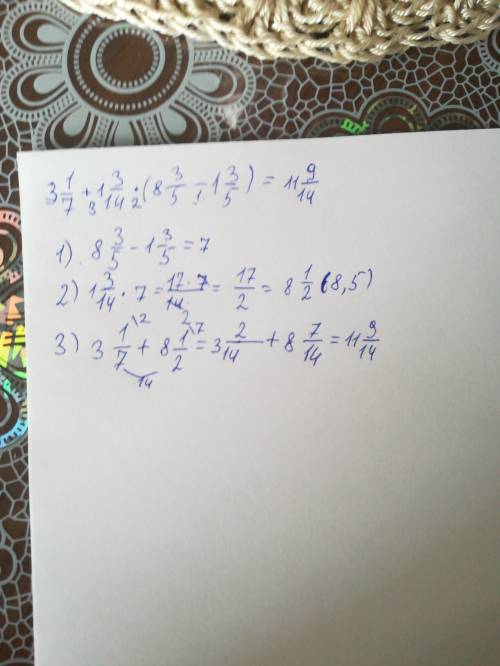 3 1/7 + 1 3/14 · (8 3/5 - 1 3/5) = 11 9/14
3 2 1.
1). 8 3/5 - 1 3/5 = 7
2) 1 3/14 · 7 = 17·7/14 = 17/2 = 8 1/2 (8,5)
2
3) 3 1\2/7 + 8 1\7/2 = 3 2/14 + 8 7/14 = 11 9/14
14